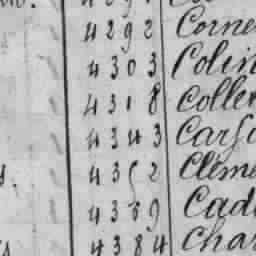 4292 Corne
4303 Colin
4318 Coller
4343 Carso
4352 Cleme
4369 Cad
4384 Char